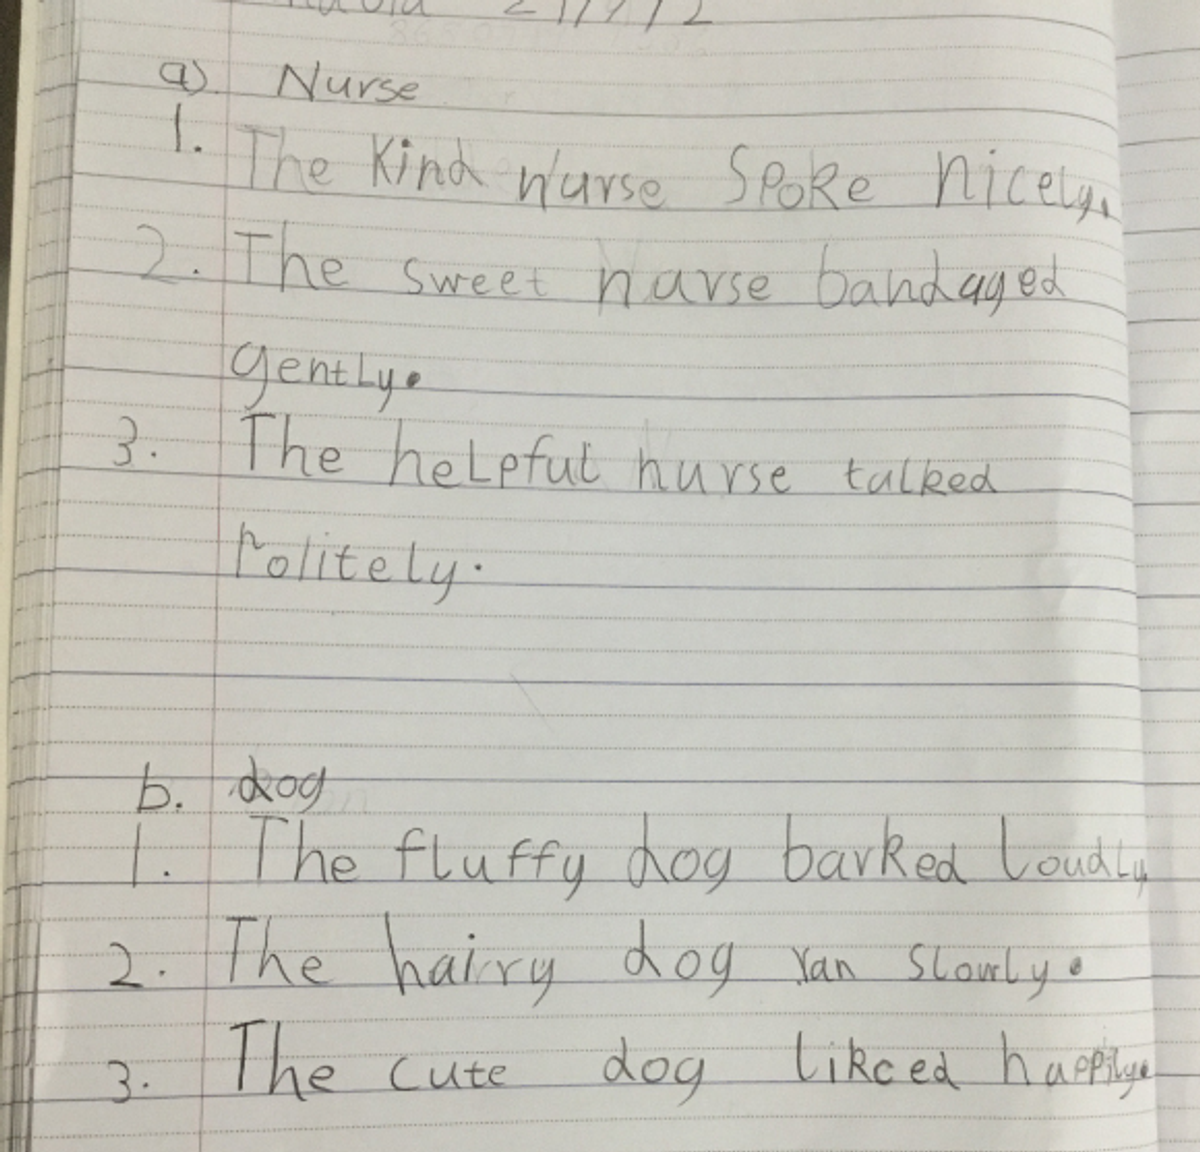 a) Nurse
1. The Kind nurse Spoke nicely.
2. The sweet nurse bandaged
gently.
3. The helpful nurse talked
Politely.
b. dog
1. The fluffy dog barked loudly
2. The hairy dog ran slowly.
3. The cute dog likced happily.